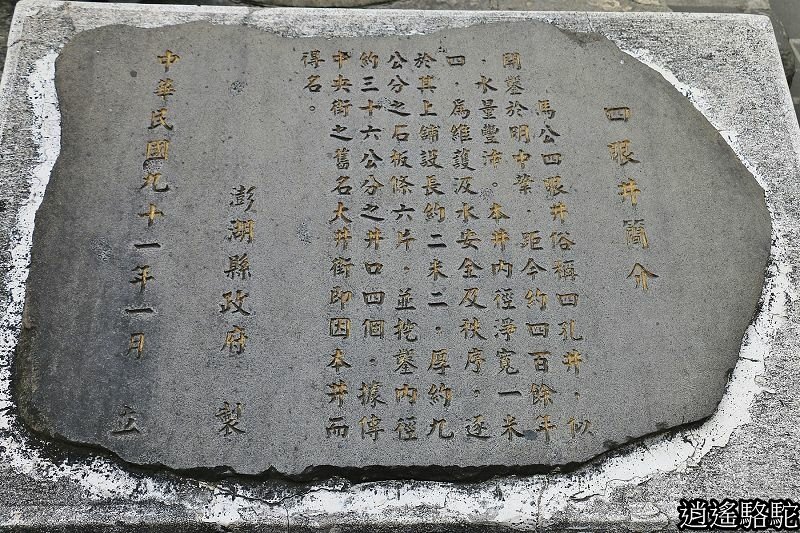 四眼井簡介
馬公四眼井俗稱四孔井，似
開鑿於明中葉，距今約四百餘年
，水量豐沛。本井內徑淨寬一米
四，為維護汲水安全及秩序，逐
於其上舖設長約二米二，厚約九
公分之石板條六片，並挖鑿內徑
約三十六公分之井口四個，據傳
中央街之舊名大井街即因本井而
得名。
澎湖縣政府 製
中華民國九十一年一月 立
逍遙駱駝